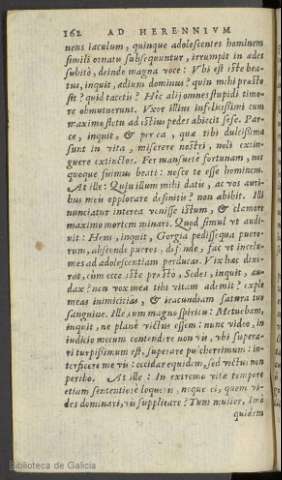 162 AD HERENNIVM
nens iaculum, quinque adolescentes hominem
simili ornatu subsequantur, irrumpit in ædes
subitò, deinde magna voce: Vbi est iste bea-
tus, inquit, ædium dominus? quin mihi præsto
fit? quid tacetis? Hic alij omnes stupidi timo-
re obmutuerunt. Vxor illius infelicissimi cum
maximo fletu ad istius pedes abiecit sese. Par-
ce, inquit, & per ea, quæ tibi dulcissima
sunt in vita, miserere nostri, noli extin-
guere extinctos. Fer mansuetè fortunam, nos
quoque fuimus beati: nosce te esse hominem.
At ille: Quin illum mihi datis, ac vos auri-
bus meis opplorare desinitis? non abibit. Illi
nunciatur interea venisse istum, & clamore
maximo mortem minari. Quod simul vt audi-
uit: Heus, inquit, Gorgia pedissequa puero-
rum, absconde pueros, defende, fac vt incolu-
mes ad adolescentiam perducas. Vix hæc dixe-
rat, cum ecce iste præsto, Sedes, inquit, au-
dax? non vox mea tibi vitam ademit? exple
meas inimicitias, & iracundiam satura tuo
sanguine. Ille cum magno spiritu: Metuebam,
inquit, ne planè victus essem: nunc video, in
iudicio mecum contendere non vis, vbi supera-
ri turpissimum est, superare pulcherrimum: in-
terficere me vis: occidar equidem, sed victus non
peribo. At ille: In extremo vitæ tempore
etiam sententiosè loqueris, neque ei, quem vi-
des dominari, vis supplicare? Tum mulier, Imò
quidem
Biblioteca de Galicia